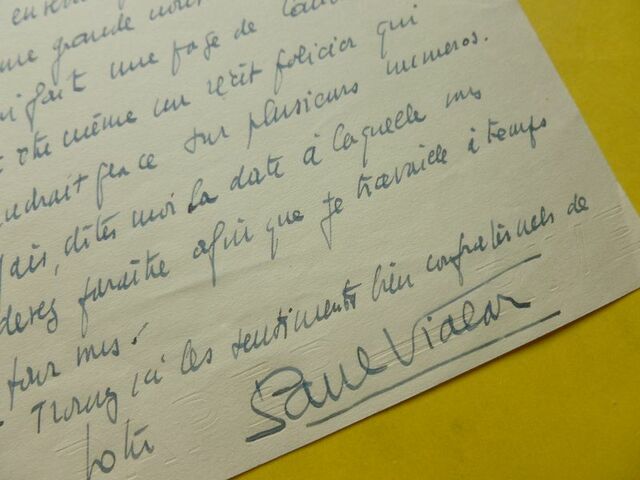 une grande nou
fait une page de
être même un récit policier qui
udrait place sur plusieurs numéros.
Mais, dites moi la date à laquelle vous
devez paraître afin que je travaille à temps
pour vous.
Trouvez ici les sentiments bien confraternels de
votre Paul Vialar